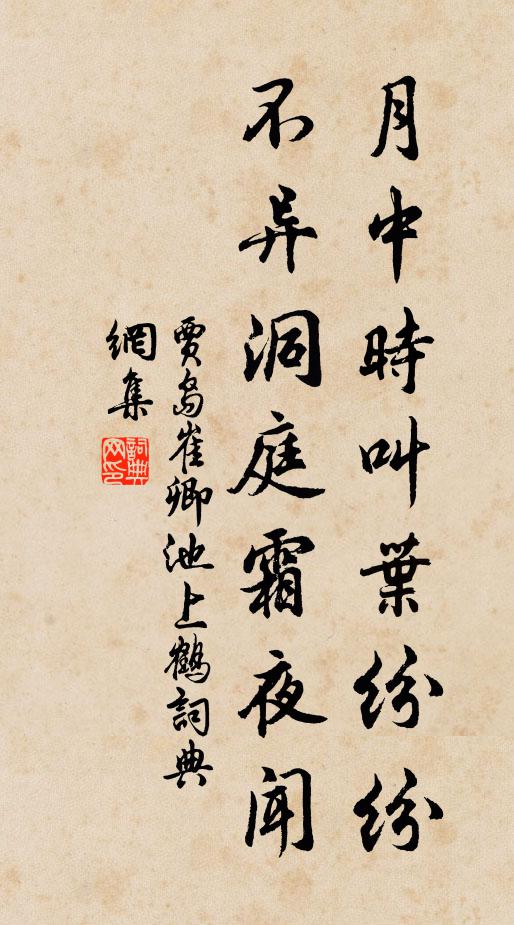 月中時叫葉紛紛
不异洞庭霜夜聞
賈島崔卿池上鶴詞典
網集
詞典网印